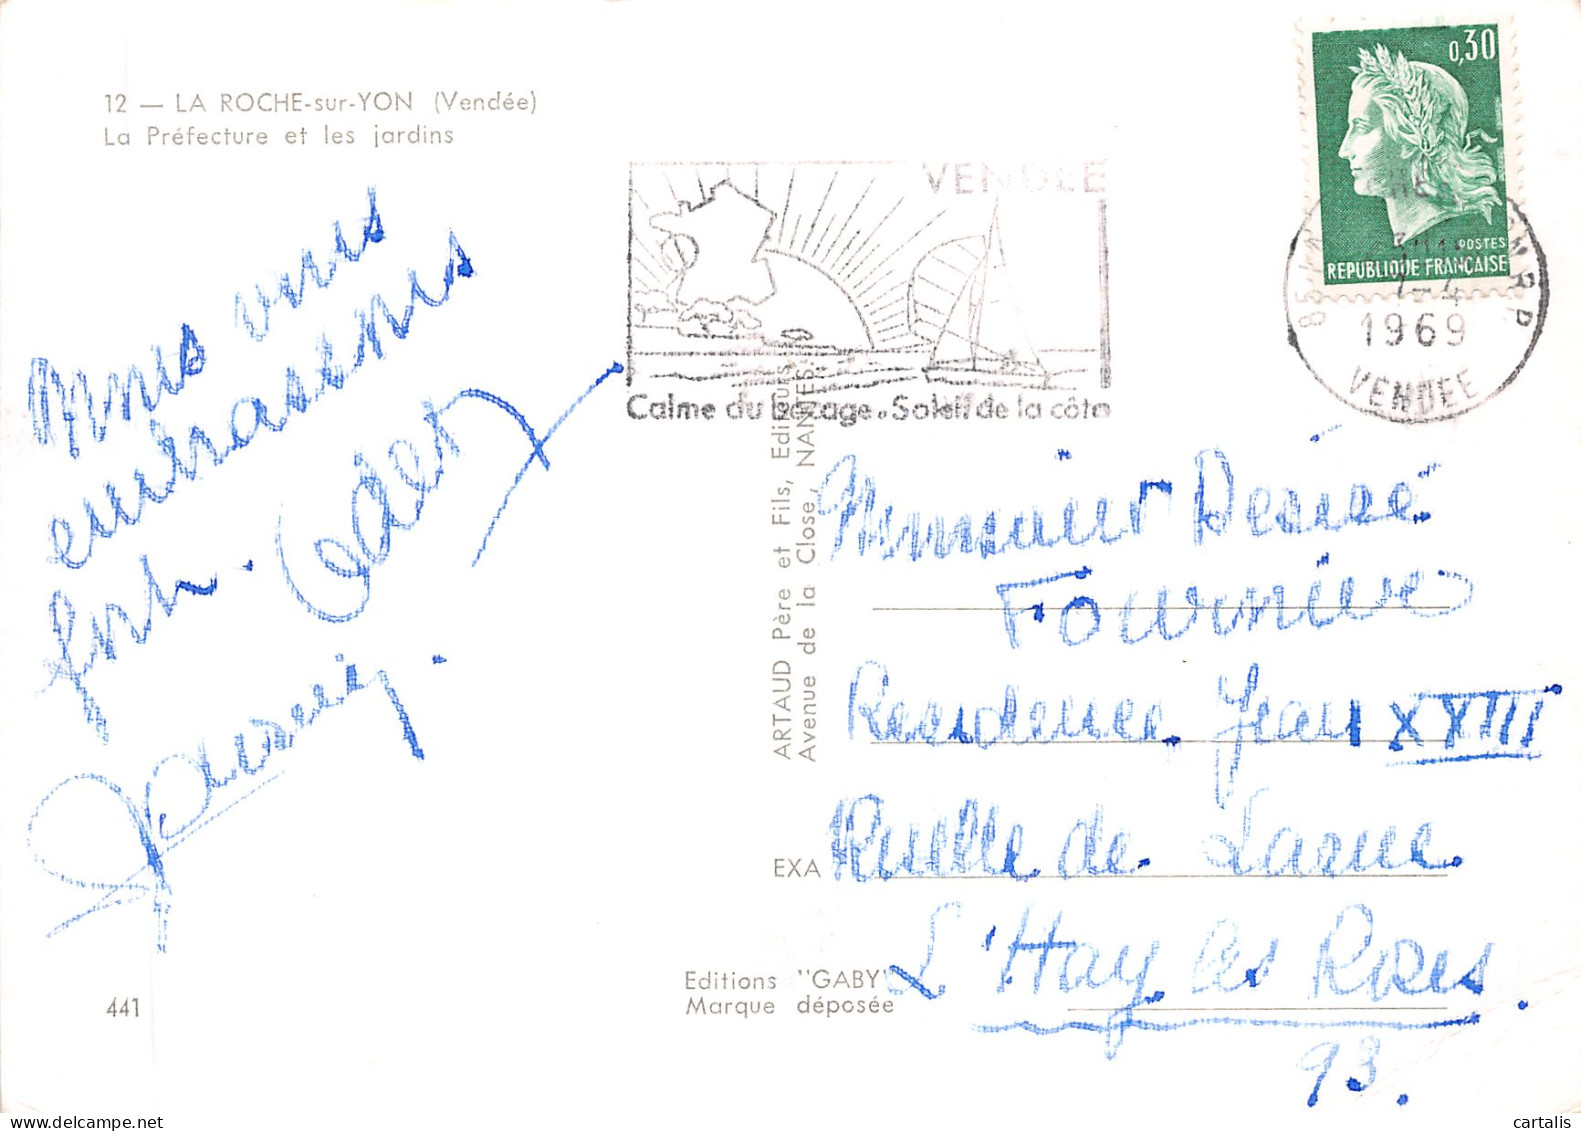 12 — LA ROCHE-sur-YON (Vendée)
La Préfecture et les jardins
0,30
POSTES
REPUBLIQUE FRANÇAISE
VENDÉE
Calme du Bocage. Soleil de la côte
85
7-4
1969
VENDEE
Nous vous
embrassons
fort.
ARTAUD Père et Fils, Editeurs,
Avenue de la Close, NANTES.
Monsieur Désiré
Fournier
Residence Jean XXIII
Ruelle de Larue
L'Hay les Roses.
93.
EXA
Editions "GABY"
Marque déposée
441
cartalis.delcampe.net